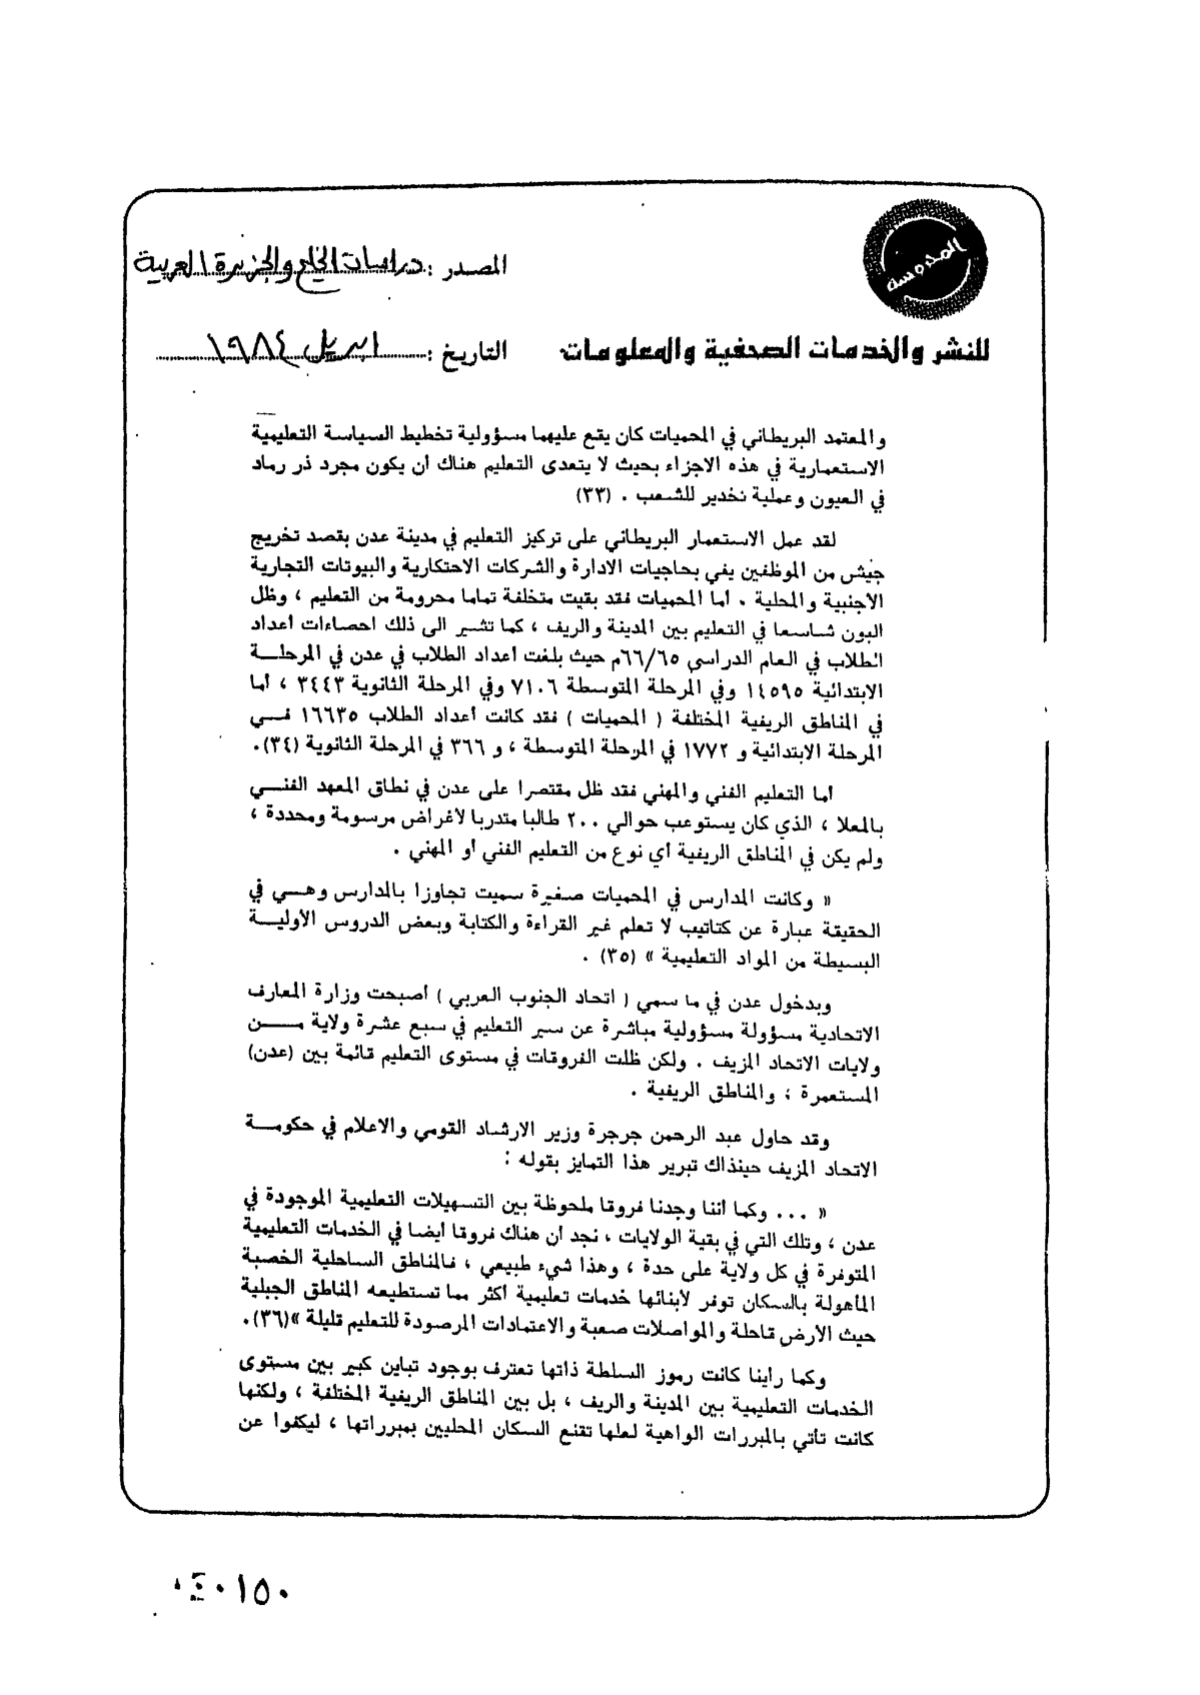 المحروسة
المصدر : دراسات الخليج والجزيرة العربية
للنشر والخدمات الصحفية والمعلومات
التاريخ : ابريل ١٩٨٤
والمعتمد البريطاني في المحميات كان يقع عليهما مسؤولية تخطيط السياسة التعليمية
الاستعمارية في هذه الاجزاء بحيث لا يتعدى التعليم هناك أن يكون مجرد ذر رماد
في العيون وعملية نخدير للشعب . (٣٣)
لقد عمل الاستعمار البريطاني على تركيز التعليم في مدينة عدن بقصد تخريج
جيش من الموظفين يفي بحاجيات الادارة والشركات الاحتكارية والبيوتات التجارية
الاجنبية والمحلية . أما المحميات فقد بقيت متخلفة تماما محرومة من التعليم ، وظل
البون شاسعا في التعليم بين المدينة والريف ، كما تشير الى ذلك احصاءات أعداد
الطلاب في العام الدراسي ٦٦/٦٥م حيث بلغت أعداد الطلاب في عدن في المرحلة
الابتدائية ١٤٥٩٥ وفي المرحلة المتوسطة ٧١٠٦ وفي المرحلة الثانوية ٣٤٤٣ ، أما
في المناطق الريفية المختلفة ( المحميات ) فقد كانت أعداد الطلاب ١٦٦٣٥ في
المرحلة الابتدائية و ١٧٧٢ في المرحلة المتوسطة ، و ٣٦٦ في المرحلة الثانوية (٣٤).
أما التعليم الفني والمهني فقد ظل مقتصرا على عدن في نطاق المعهد الفني
بالمعلا ، الذي كان يستوعب حوالي ٢٠٠ طالبا متدربا لاغراض مرسومة ومحددة ،
ولم يكن في المناطق الريفية أي نوع من التعليم الفني أو المهني .
« وكانت المدارس في المحميات صغيرة سميت تجاوزا بالمدارس وهي في
الحقيقة عبارة عن كتاتيب لا تعلم غير القراءة والكتابة وبعض الدروس الأولية
البسيطة من المواد التعليمية » (٣٥) .
وبدخول عدن في ما سمي ( اتحاد الجنوب العربي ) أصبحت وزارة المعارف
الاتحادية مسؤولة مسؤولية مباشرة عن سير التعليم في سبع عشرة ولاية من
ولايات الاتحاد المزيف . ولكن ظلت الفروقات في مستوى التعليم قائمة بين (عدن)
المستعمرة ، والمناطق الريفية .
وقد حاول عبد الرحمن جرجرة وزير الارشاد القومي والاعلام في حكومة
الاتحاد المزيف حينذاك تبرير هذا التمايز بقوله :
« ... وكما أننا وجدنا فروقا ملحوظة بين التسهيلات التعليمية الموجودة في
عدن ، وتلك التي في بقية الولايات ، نجد أن هناك فروقا أيضا في الخدمات التعليمية
المتوفرة في كل ولاية على حدة ، وهذا شيء طبيعي ، فالمناطق الساحلية الخصبة
المأهولة بالسكان توفر لأبنائها خدمات تعليمية أكثر مما تستطيعه المناطق الجبلية
حيث الأرض قاحلة والمواصلات صعبة والاعتمادات المرصودة للتعليم قليلة »(٣٦).
وكما رأينا كانت رموز السلطة ذاتها تعترف بوجود تباين كبير بين مستوى
الخدمات التعليمية بين المدينة والريف ، بل بين المناطق الريفية المختلفة ، ولكنها
كانت تأتي بالمبررات الواهية لعلها تقنع السكان المحليين بمبرراتها ، ليكفوا عن